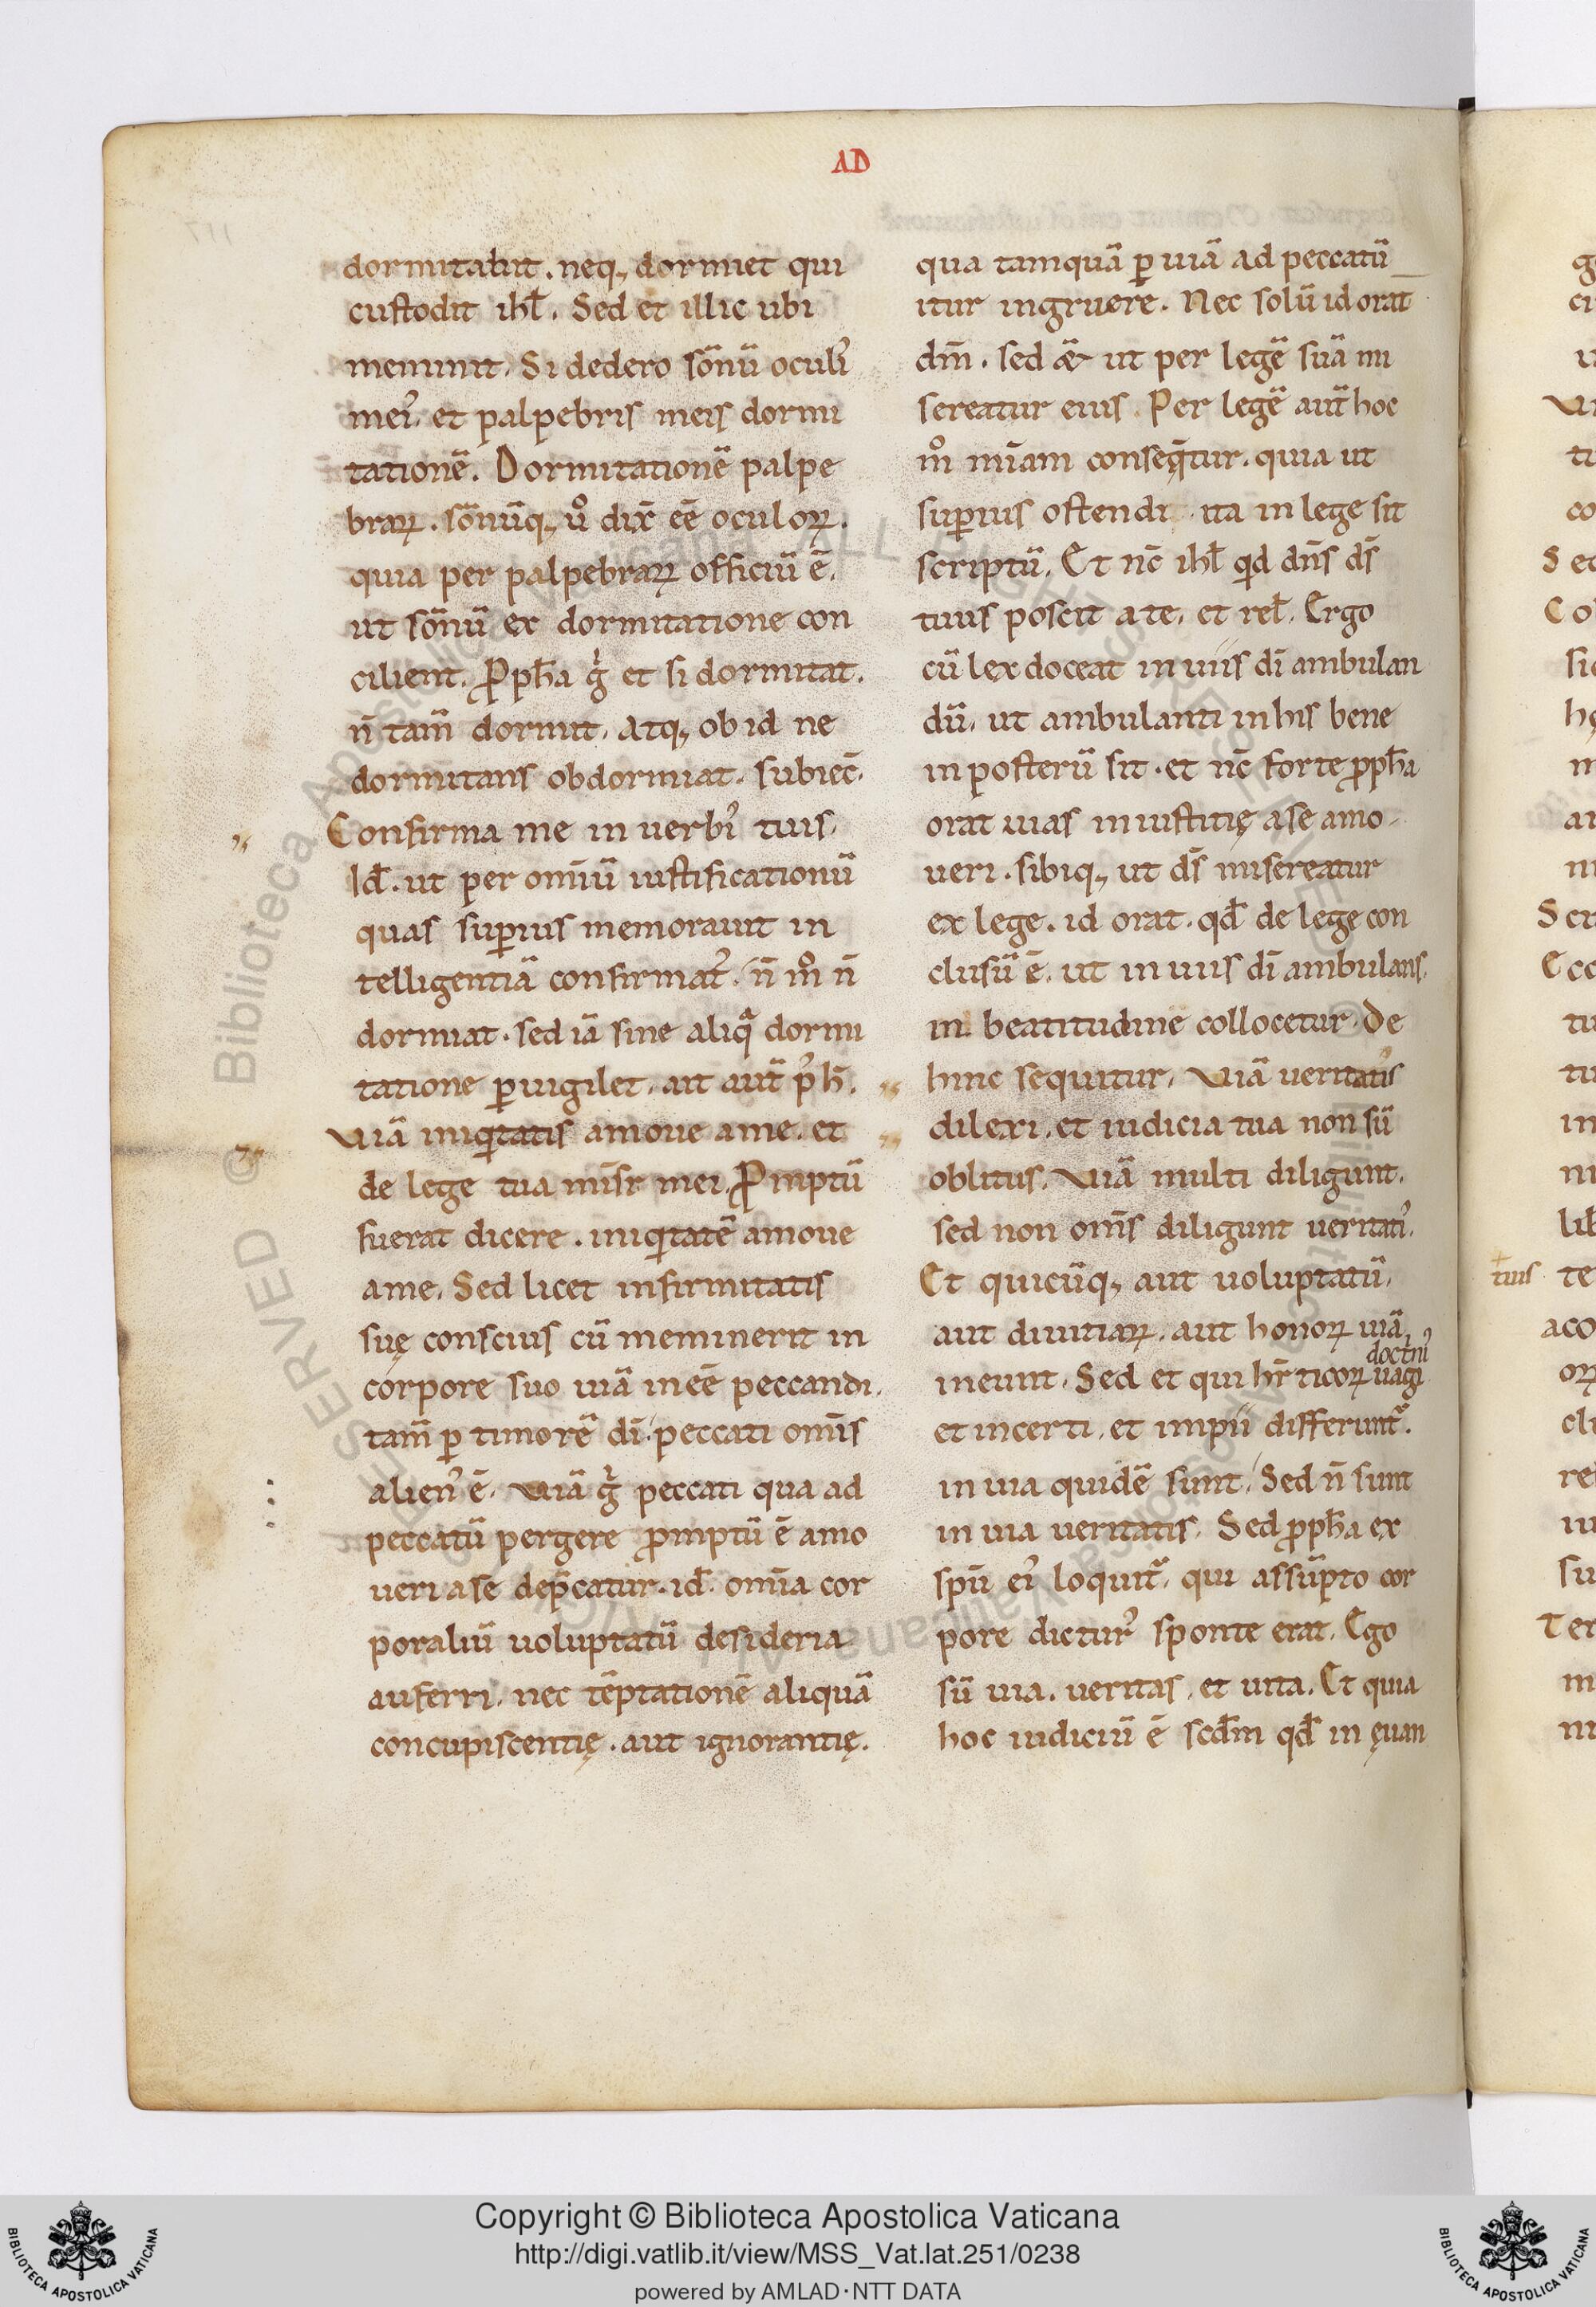 AD
dormitabit. neq; dormiet qui
custodit ihł. Sed et illic ubi
meminit. Si dedero sōnū oculꝰ
meiꝰ et palpebris meis dormi
tationē. Dormitationē palpe
braꝝ. sōnūq; ů dix̄ eē oculoꝝ.
quia per palpebraꝝ officiū ē.
ut sōnū ex dormitatione con
cilient. Ꝓph̄a g̊ et si dormitat.
n̄ tam̄ dormit. Atq; ob id ne
dormitans obdormiat. subiec̄.
Confirma me in uerbiꝰ tuis.
Id̄. ut per omīū iustificationū
quas suꝑius memorauit in
telligentiā confirmatꝰ. n̄ m̊ n̄
dormiat. sed iā sine aliqᵃ dormi
tatione ꝑuigilet. ait aut̄ pꝰh̄.
Viā iniqͥtatis amoue a me. et
de lege tua mis̄r mei. Ꝓmptū
fuerat dicere. iniqͥtatē amoue
a me. Sed licet infirmitatis
suę conscius cū meminerit in
corpore suo uiā ineē peccandi.
tam̄ ꝑ timorē dī peccati om̄is
alienꝰ ē. Viā g̊ peccati qua ad
peccatū pergere ꝓmptū ē amo
ueri a se dep̄catur. id̄. omīa cor
poraliū uoluptatū desideria
auferri. nec tēptationē aliquā
concupiscentię. aut ignorantię.
qua tamquā ꝑ uiā ad peccatū
itur ingruere. Nec solū id orat
dm̄. sed & ut per legē suā mi
sereatur eius. Per legē aut̄ hoc
m̊ mīam conseq̄tur. quia ut
suꝑius ostendi. ita in lege sit
scriptū. Et nc̄ ihł qͥd dn̄s ds̄
tuus poscit a te. et reł. Ergo
cū lex doceat in uiis dī ambulan
dū. ut ambulanti in his bene
in posterū sit. et nc̄ forte ꝓph̄a
orat uias iniustitię a se amo-
ueri. sibiq; ut ds̄ misereatur
ex lege. id orat. qđ de lege con
clusū ē. ut in uiis dī ambulans.
in beatitudine collocetur. De
hinc sequitur. Viā ueritatis
dilexi. et iudicia tua non sū
oblitus. Viā multi diligunt.
sed non om̄s diligunt ueritatiꝰ.
Et quicūq; aut uoluptatū.
aut diuitiaꝝ. aut honoꝝ uiā
ineunt. Sed et qui hr̄ticoꝝ doct̄niꝰ uagi
et incerti. et impii differunt̄.
in uia quidē sunt. Sed n̄ sunt
in uia ueritatis. Sed ꝓph̄a ex
spū eiꝰ loquit̄. qui assūpto cor
pore dicturꝰ sponte erat. Ego
sū uia. ueritas. et uita. Et quia
hoc iudiciū ē scđm qđ in ęuan
tuis
Copyright © Biblioteca Apostolica Vaticana
http://digi.vatlib.it/view/MSS_Vat.lat.251/0238
powered by AMLAD·NTT DATA
BIBLIOTECA APOSTOLICA VATICANA
BIBLIOTECA APOSTOLICA VATICANA